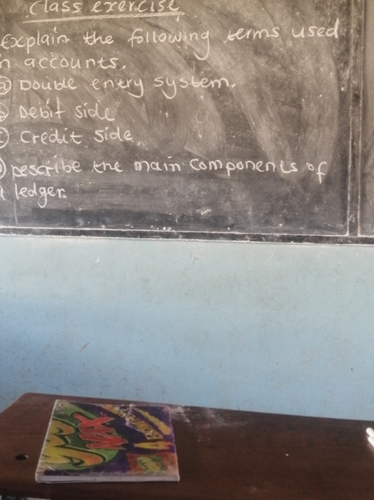 Class exercise
Explain the following terms used
in accounts.
a) Double entry system.
b) Debit side
c) Credit side.
) Describe the main components of
a ledger.